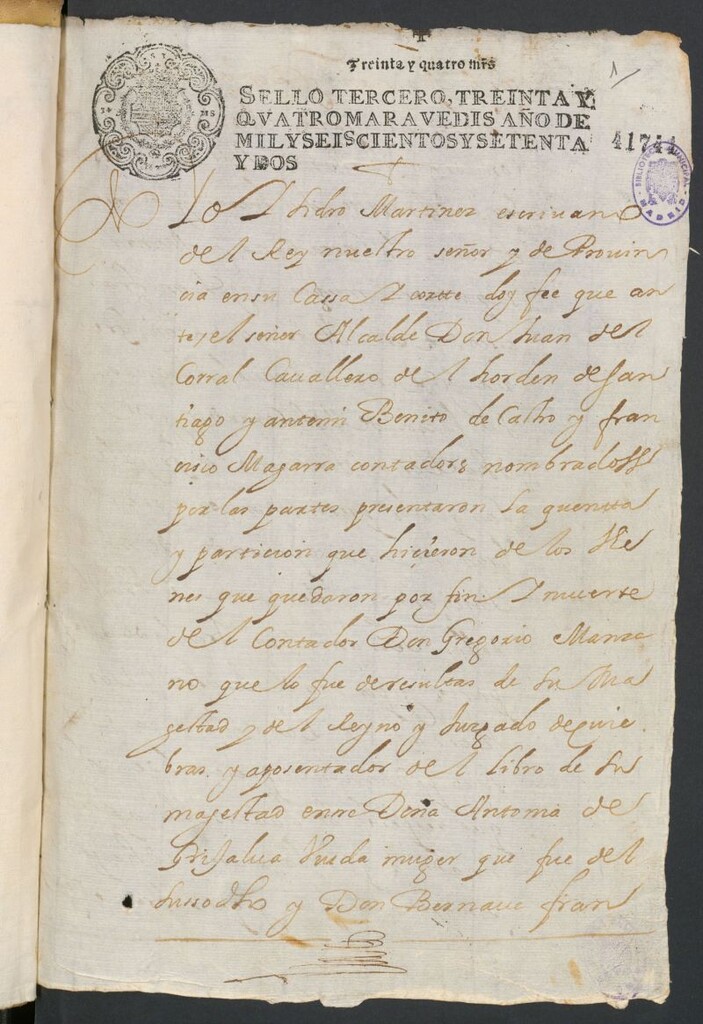 Treinta y quatro mrs
1
SELLO TERCERO, TREINTA Y
QVATRO MARAVEDIS AÑO DE
MIL Y SEISCIENTOS Y SETENTA
Y DOS
BIBLIOTECA MUNICIPAL
MADRID
Yo Isidro Martinez escrivano
del Rey nuestro señor y de Provin
cia en su Cassa y corte doy fee que an
te el señor Alcalde Don Juan del
Corral Cauallero del horden de san
tiago y antemi Benito de Castro y fran
cisco Magarra contadores nombrados
por las partes presentaron la quenta
y particion que hicieron de los Bie
nes que quedaron por fin y muerte
del Contador Don Gregorio Manza
no que lo fue de resultas de su Ma
gestad y del Reyno y Juzgado de quie
bras y aposentador del libro de su
magestad entre Doña Antonia de
Grijalua Viuda muger que fue del
sussodho y Don Bernaue fran